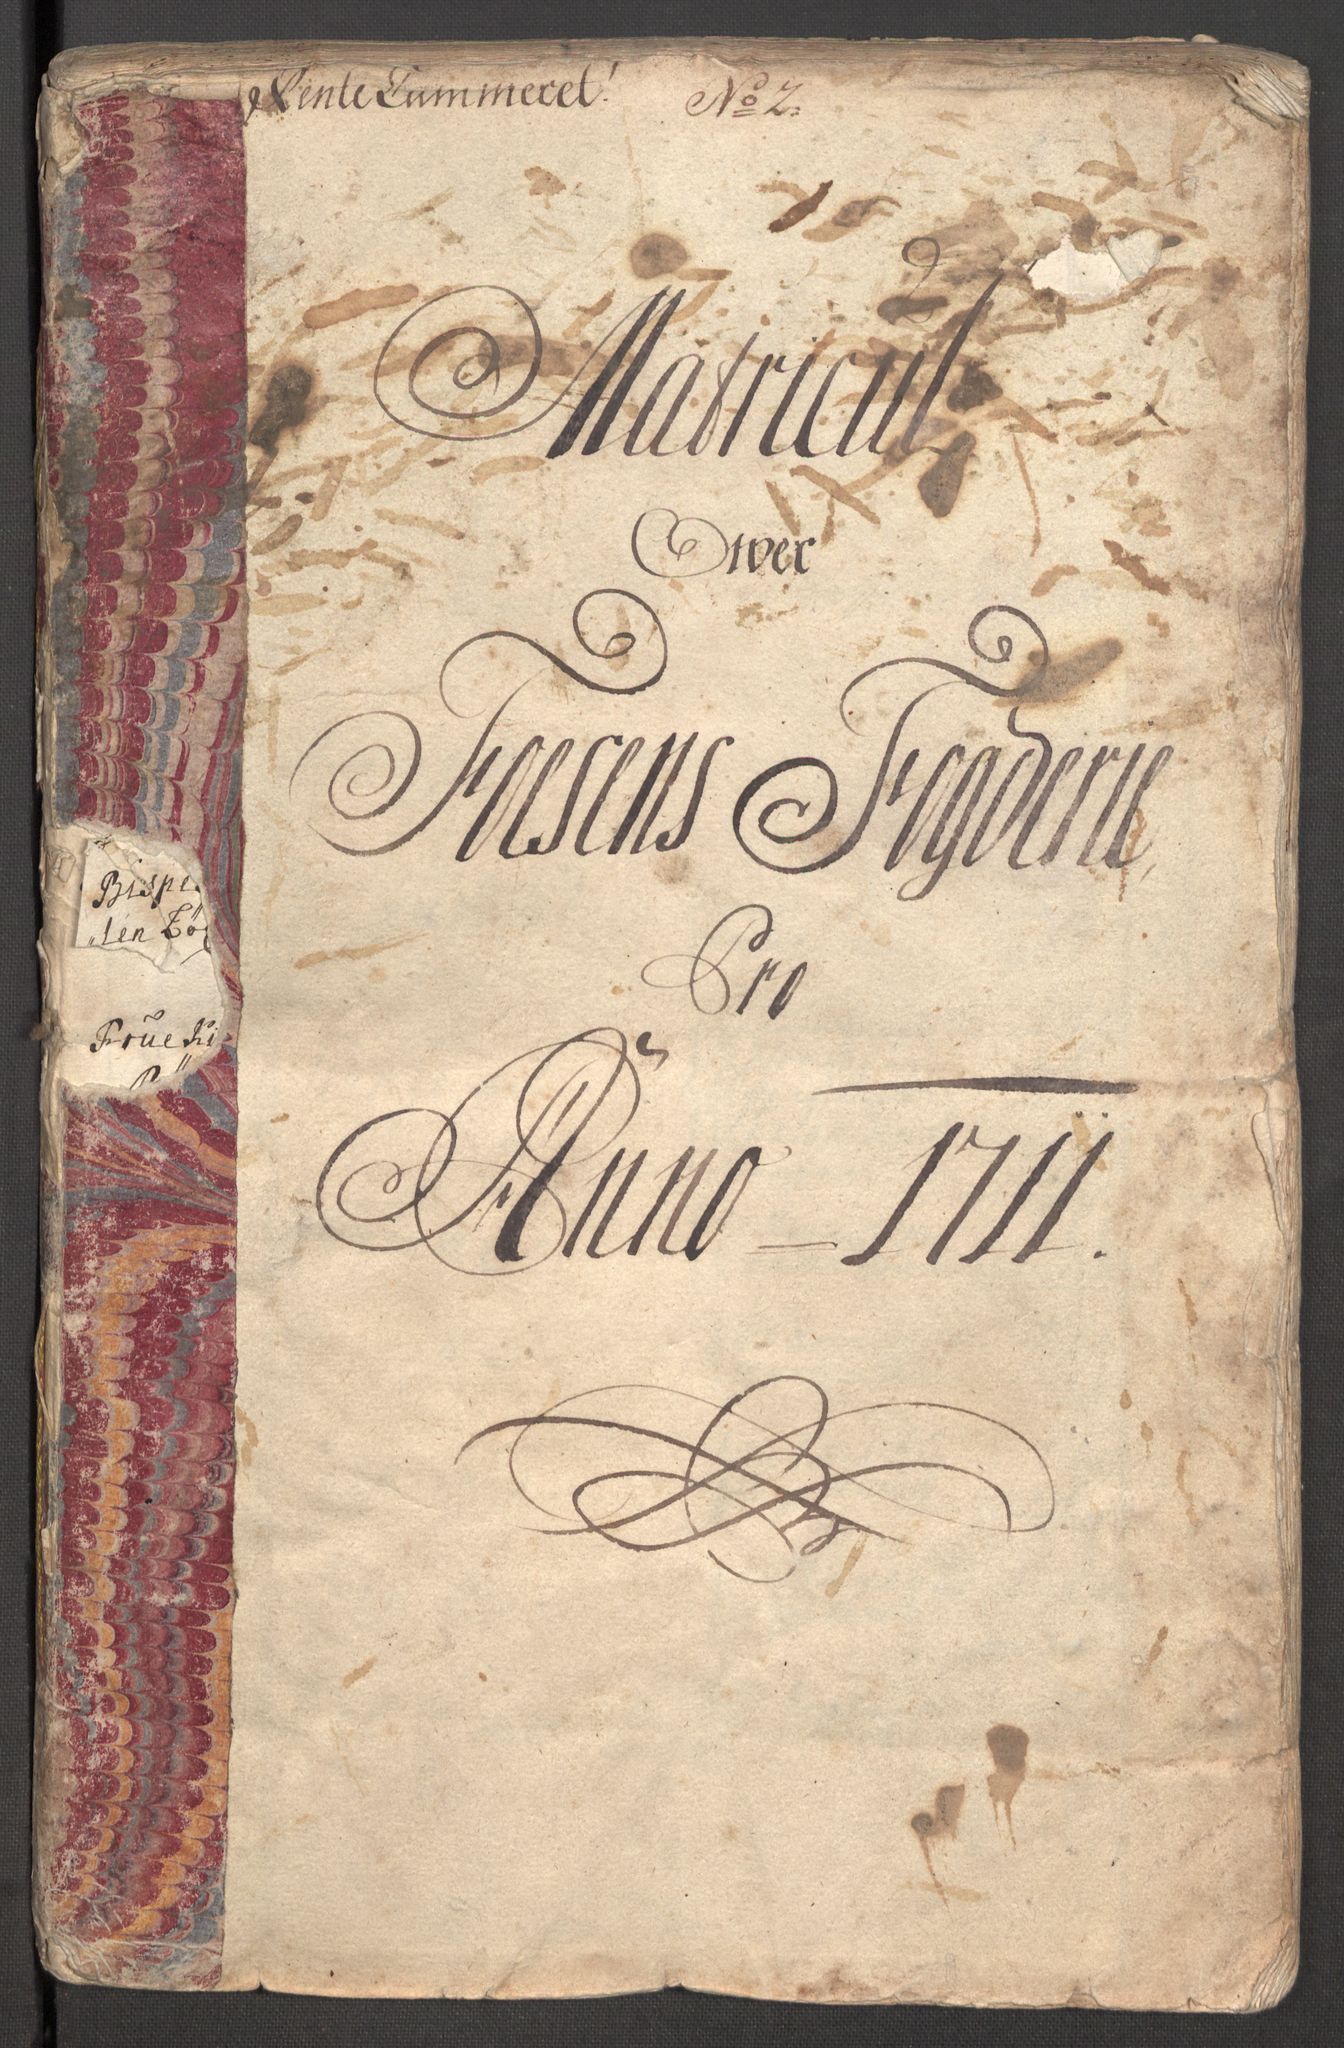 Rente Cammeret!
No 2.
Matricul
Over
Foesens Fogderie
Pro
Anno - 1711.
Bispe
Früe Ki